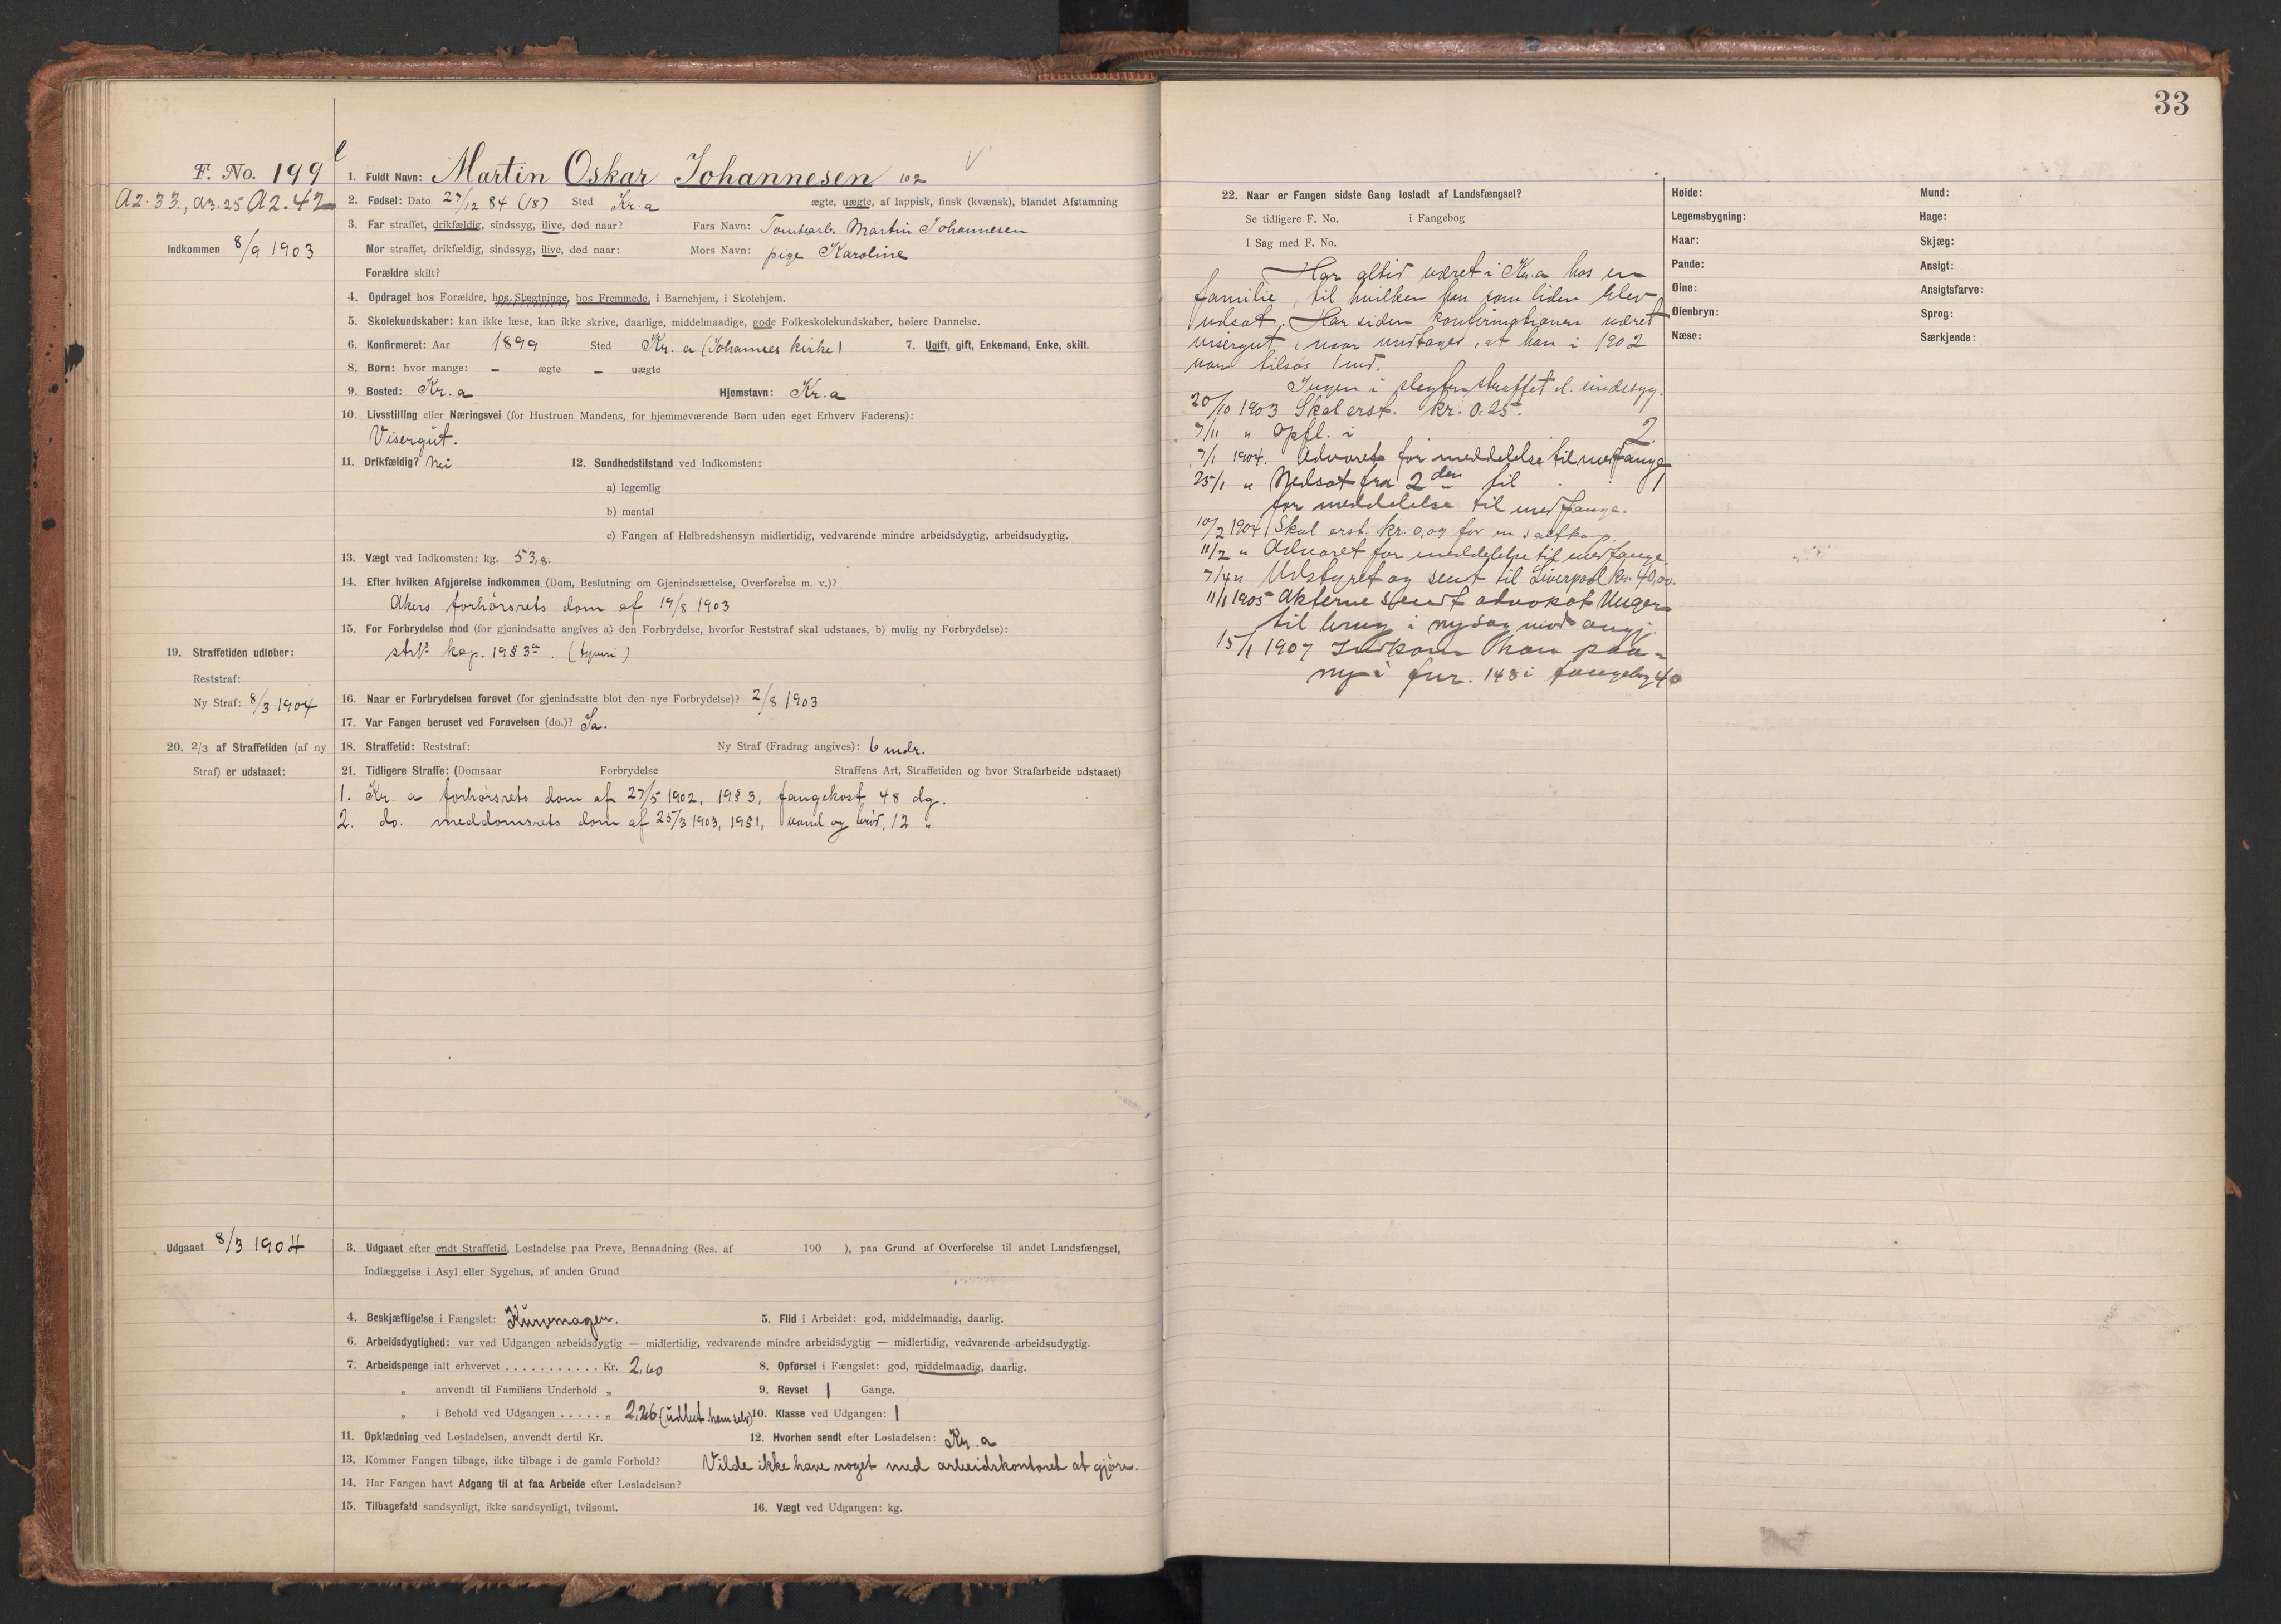 33
F. No. 199
A2.33., A3.25 A2.42
Indkommen 8/9 1903
1. Fuldt Navn: Martin Oskar Johannesen 102
2. Fødsel: Dato 27/12 84 (18) Sted Kr.a ægte, uægte, af lappisk, finsk (kvænsk), blandet Afstamning
3. Far straffet, drikfældig, sindssyg, ilive, død naar? Fars Navn: Tomtearb. Martin Johannesen
Mor straffet, drikfældig, sindssyg, ilive, død naar: Mors Navn: pige Karoline
Forældre skilt?
4. Opdraget hos Forældre, hos Slægtninge, hos Fremmede, i Barnehjem, i Skolehjem.
5. Skolekundskaber: kan ikke læse, kan ikke skrive, daarlige, middelmaadige, gode Folkeskolekundskaber, høiere Dannelse.
6. Konfirmeret: Aar 1899 Sted Kr.a (Johannes kirke) 7. Ugift, gift, Enkemand, Enke, skilt.
8. Børn: hvor mange: – ægte – uægte
9. Bosted: Kr.a Hjemstavn: Kr.a
10. Livsstilling eller Næringsvei (for Hustruen Mandens, for hjemmeværende Børn uden eget Erhverv Faderens):
Visergut.
11. Drikfældig? Nei 12. Sundhedstilstand ved Indkomsten:
a) legemlig
b) mental
c) Fangen af Helbredshensyn midlertidig, vedvarende mindre arbeidsdygtig, arbeidsudygtig.
13. Vægt ved Indkomsten: kg. 53,8.
14. Efter hvilken Afgjørelse indkommen (Dom, Beslutning om Gjenindsættelse, Overførelse m. v.)?
Akers forhørsrets dom af 19/8 1903
15. For Forbrydelse mod (for gjenindsatte angives a) den Forbrydelse, hvorfor Reststraf skal udstaaes, b) mulig ny Forbrydelse):
strl. kap. 19 § 3 . (tyveri)
19. Straffetiden udløber:
Reststraf:
Ny Straf: 8/3 1904
16. Naar er Forbrydelsen forøvet (for gjenindsatte blot den nye Forbrydelse)? 2/8 1903
17. Var Fangen beruset ved Forøvelsen (do.)? Ja.
20. 2/3 af Straffetiden (af ny
Straf) er udstaaet:
18. Straffetid: Reststraf: Ny Straf (Fradrag angives): 6 mdr.
21. Tidligere Straffe: (Domsaar Forbrydelse Straffens Art, Straffetiden og hvor Strafarbeide udstaaet)
1. Kr. a forhørsrets dom af 27/5 1902, 19 § 3, fangekost 48 dg.
2. do. meddomsrets dom af 25/3 1903, 19 § 1, vand og brød, 12 "
Udgaaet 8/3 1904
3. Udgaaet efter endt Straffetid, Løsladelse paa Prøve, Benaadning (Res. af 190 ), paa Grund af Overførelse til andet Landsfængsel,
Indlæggelse i Asyl eller Sygehus, af anden Grund
4. Beskjæftigelse i Fængslet: Kurvmager. 5. Flid i Arbeidet: god, middelmaadig, daarlig.
6. Arbeidsdygtighed: var ved Udgangen arbeidsdygtig — midlertidig, vedvarende mindre arbeidsdygtig — midlertidig, vedvarende arbeidsudygtig.
7. Arbeidspenge ialt erhvervet . . . . . . . . . . . Kr. 2,60 8. Opførsel i Fængslet: god, middelmaadig, daarlig.
" anvendt til Familiens Underhold " 9. Revset 1 Gange.
" i Behold ved Udgangen . . . . . " 2,26 (udbet. ham selv) 10. Klasse ved Udgangen: 1
11. Opklædning ved Løsladelsen, anvendt dertil Kr. 12. Hvorhen sendt efter Løsladelsen: Kr. a
13. Kommer Fangen tilbage, ikke tilbage i de gamle Forhold? Vilde ikke have noget med arbeidskontoret at gjøre.
14. Har Fangen havt Adgang til at faa Arbeide efter Løsladelsen?
15. Tilbagefald sandsynligt, ikke sandsynligt, tvilsomt. 16. Vægt ved Udgangen: kg.
22. Naar er Fangen sidste Gang løsladt af Landsfængsel?
Se tidligere F. No. i Fangebog
I Sag med F. No.
Har altid været i Kr.a hos en
familie, til hvilken han som liden blev
udsat. Har siden konfirmationen været
visergut, naar undtages, at han i 1902
var tilsøs 1 md.
Ingen i slegten straffet el. sindssyg.
20/10 1903 Skal erst. kr. 0.25.
7/11 " Opfl. i 2
7/1 1904. Advaret for meddelelse til medfange
25/1 " Nedsat fra 2den til 1
for meddelelse til medfange.
10/2 1904 Skal erst. kr. 0,09 for en saltkop.
11/2 " Advaret for meddelelse til medfange
7/4 " Udstyret og sendt til Liverpool kr. 40,00.
11/1 1905 Akterne sendt advokat Unger
til brug i ny sag mod angj.
15/1 1907 Indkom han paa
ny i fnr. 148 i fangebog 40
Høide: Mund:
Legemsbygning: Hage:
Haar: Skjæg:
Pande: Ansigt:
Øine: Ansigtsfarve:
Øienbryn: Sprog:
Næse: Særkjende: